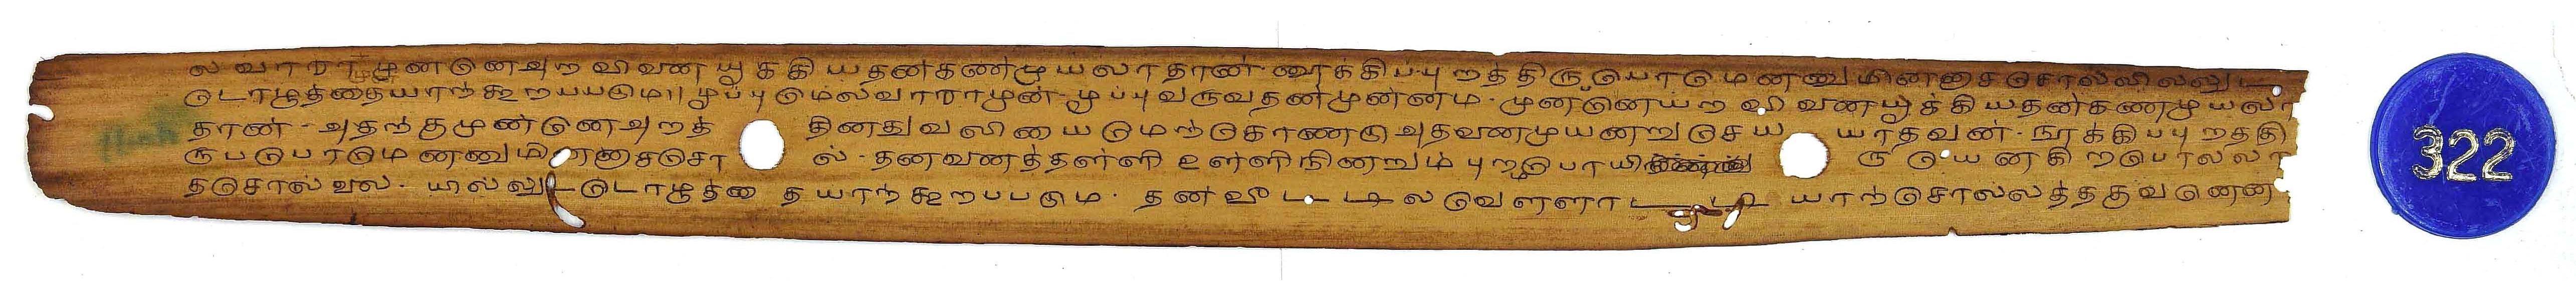 ல வாராமுனனெஅறவிவனயூககியதனகணமுயலாதான- நூக்கிப்புறத்திருபெயாடுமெனனுமினனுசசொல்லிலலு
டொழுத்தையாற்கூறபபடும|| மூப்புமேல்வாராமுன்-மூப்புவருவதன்முன்னம- முன்னெயறவிவனையூக்கியதன்கணமுயலா
தான்- அதற்குமுன்னெஅறத் தினதுவலியையெமற்கொணடுஅதவனமுயனறுசெய யாதவன்- நூக்கிபபுறததி
ருபடுபாடுமெனனுமினனுசசொ ல்- தனவனத்தள்ளி உள்ளிநினறும் புறமபொயி ருபெயனகிறபொலலா
தசொல்வல- யில்லுடடொழுத்தை தயாற்கூறபபடும- தன்வீடடிலவெளளாடடி யாற்சொலலத்தகுவனென
322